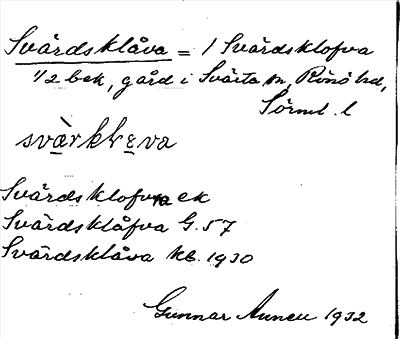 Svärdsklåva = 1 Svärdsklofva
1/2 bek, gård i Svärta sn, Rönö hd,
Sörml. l
svärklɛva
Svärdsklofva ek
Svärdsklåfva G. 57
Svärdsklåva kb. 1930
Gunnar 1932